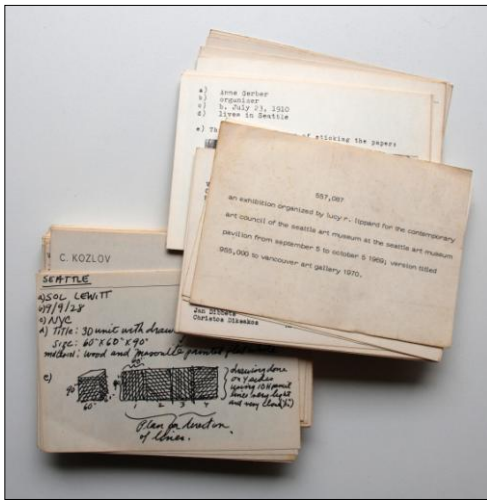 a) Anne Gerber
b) organizer
c) b. July 23, 1910
d) lives in Seattle
e) Th of sticking the papers
557,087
an exhibition organized by lucy r. lippard for the contemporary
art council of the seattle art museum at the seattle art museum
pavilion from september 5 to october 5 1969; version titled
955,000 to vancouver art gallery 1970.
Jan Dibbets
Christos Dikeakos
C. KOZLOV
SEATTLE
a) SOL LEWITT
b) 9/9/28
c) NYC
d) Title: 3D unit with draw
Size: 60" x 60" x 90"
wood and Masonite painted
e)
90"
60"
1 2 3 4
drawing done
on 4 sides
using 10H pencil
lines very light
and very close
Plan for direction
of lines.